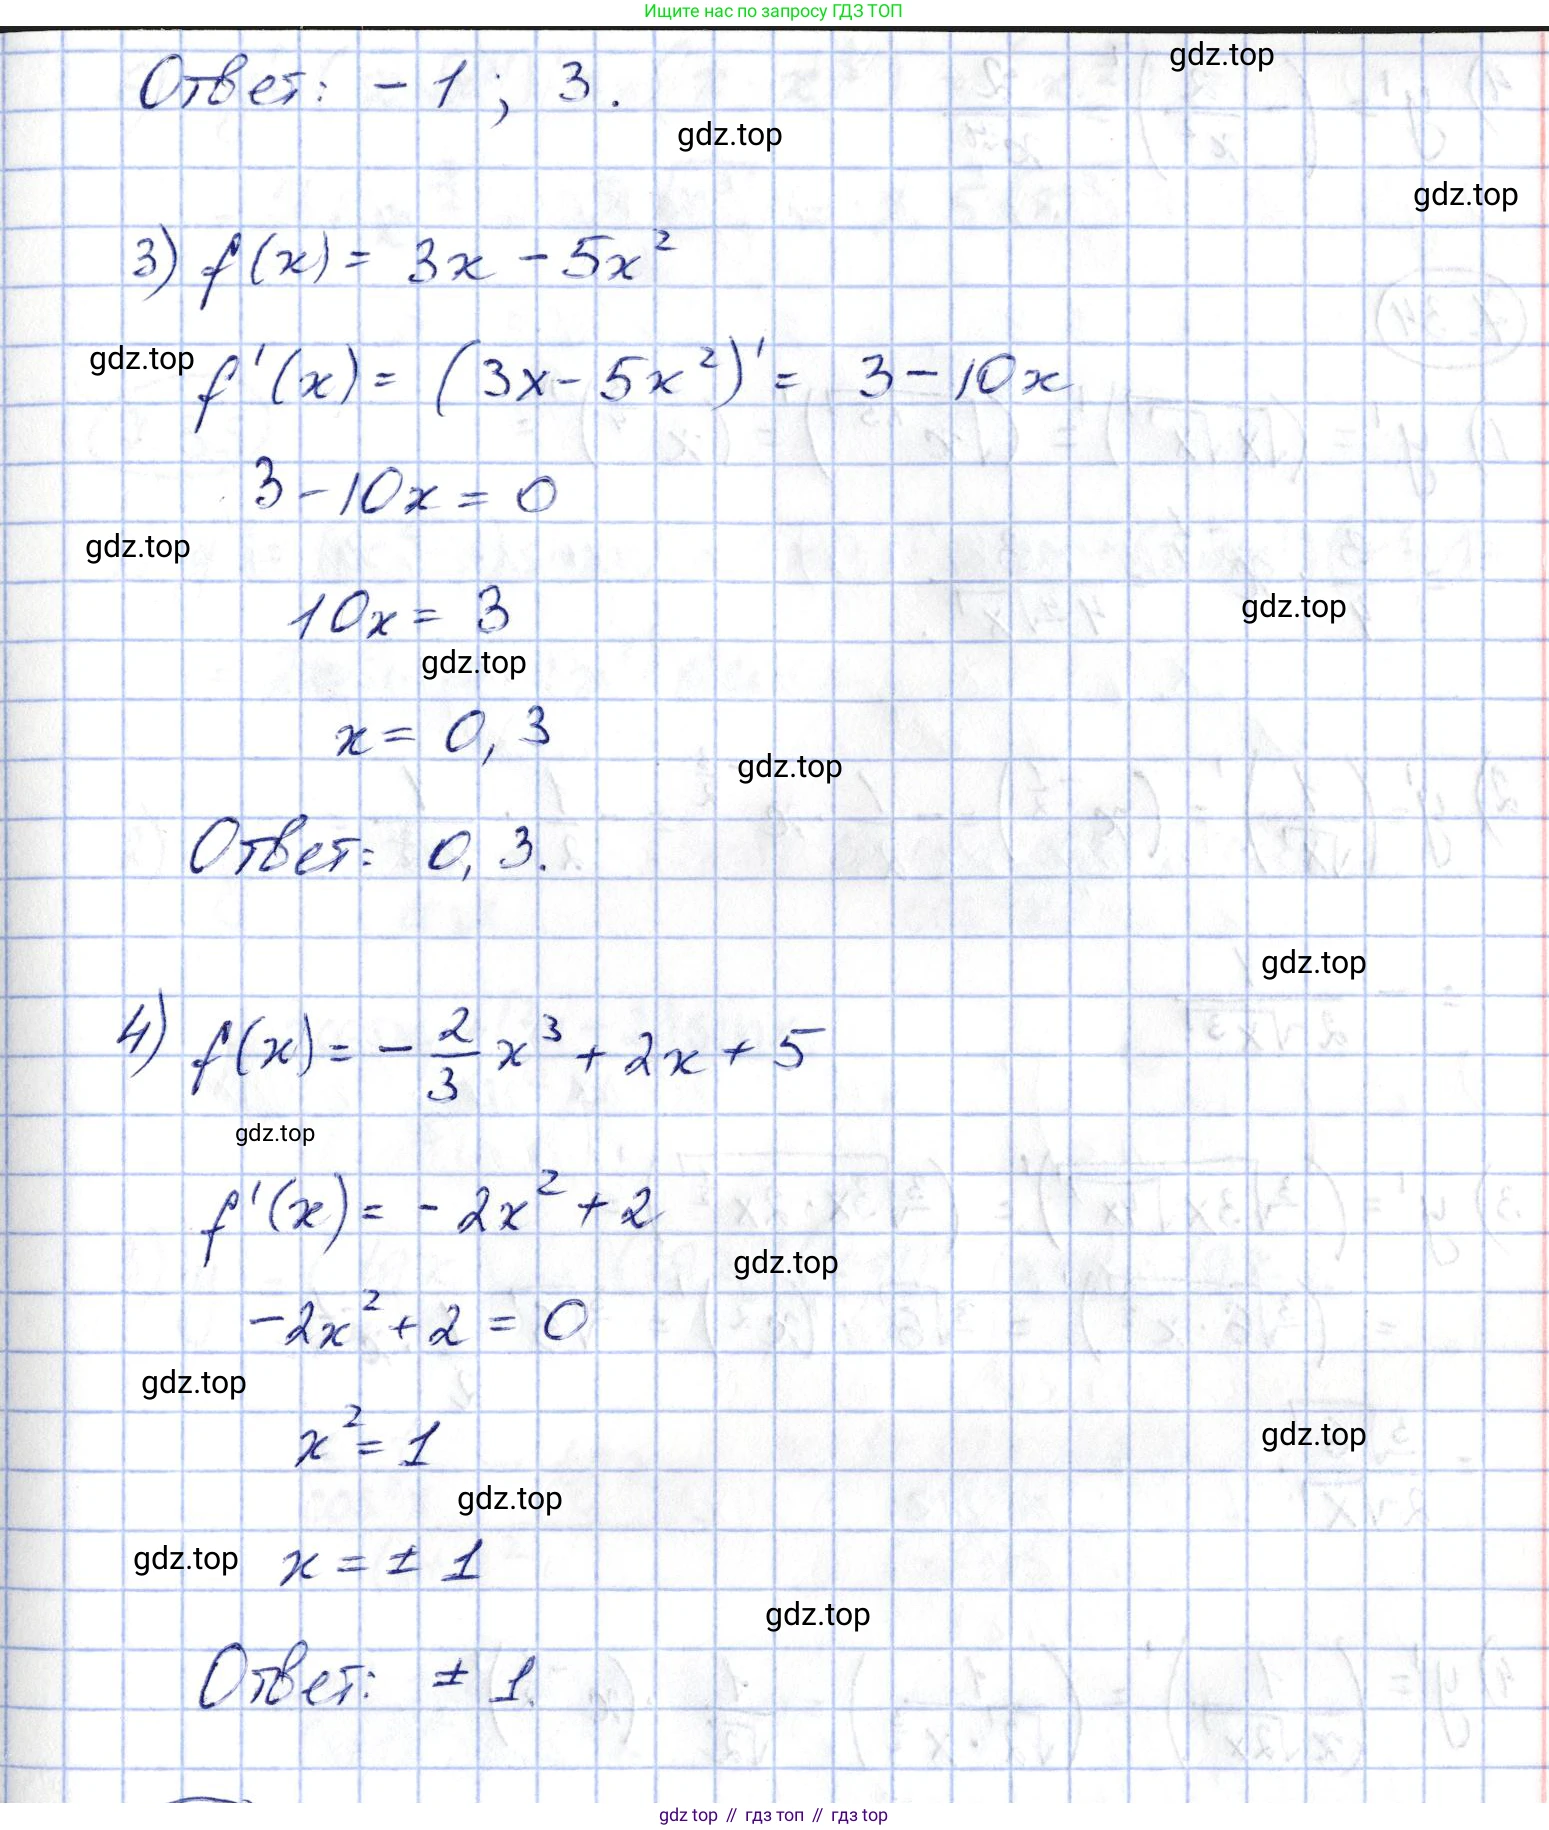 Ищите нас по запросу ГДЗ ТОП
Ответ: - 1 ; 3.
gdz.top
gdz.top
gdz.top
3) f(x) = 3x - 5x²
gdz.top
f'(x) = (3x - 5x²)' = 3 - 10x
3 - 10x = 0
gdz.top
10x = 3
gdz.top
gdz.top
x = 0,3
gdz.top
Ответ: 0,3.
gdz.top
4) f(x) = - 2/3 x³ + 2x + 5
gdz.top
f'(x) = - 2x² + 2
gdz.top
-2x² + 2 = 0
gdz.top
x² = 1
gdz.top
gdz.top
gdz.top
x = ± 1
gdz.top
Ответ: ± 1.
gdz top // гдз топ // гдз top